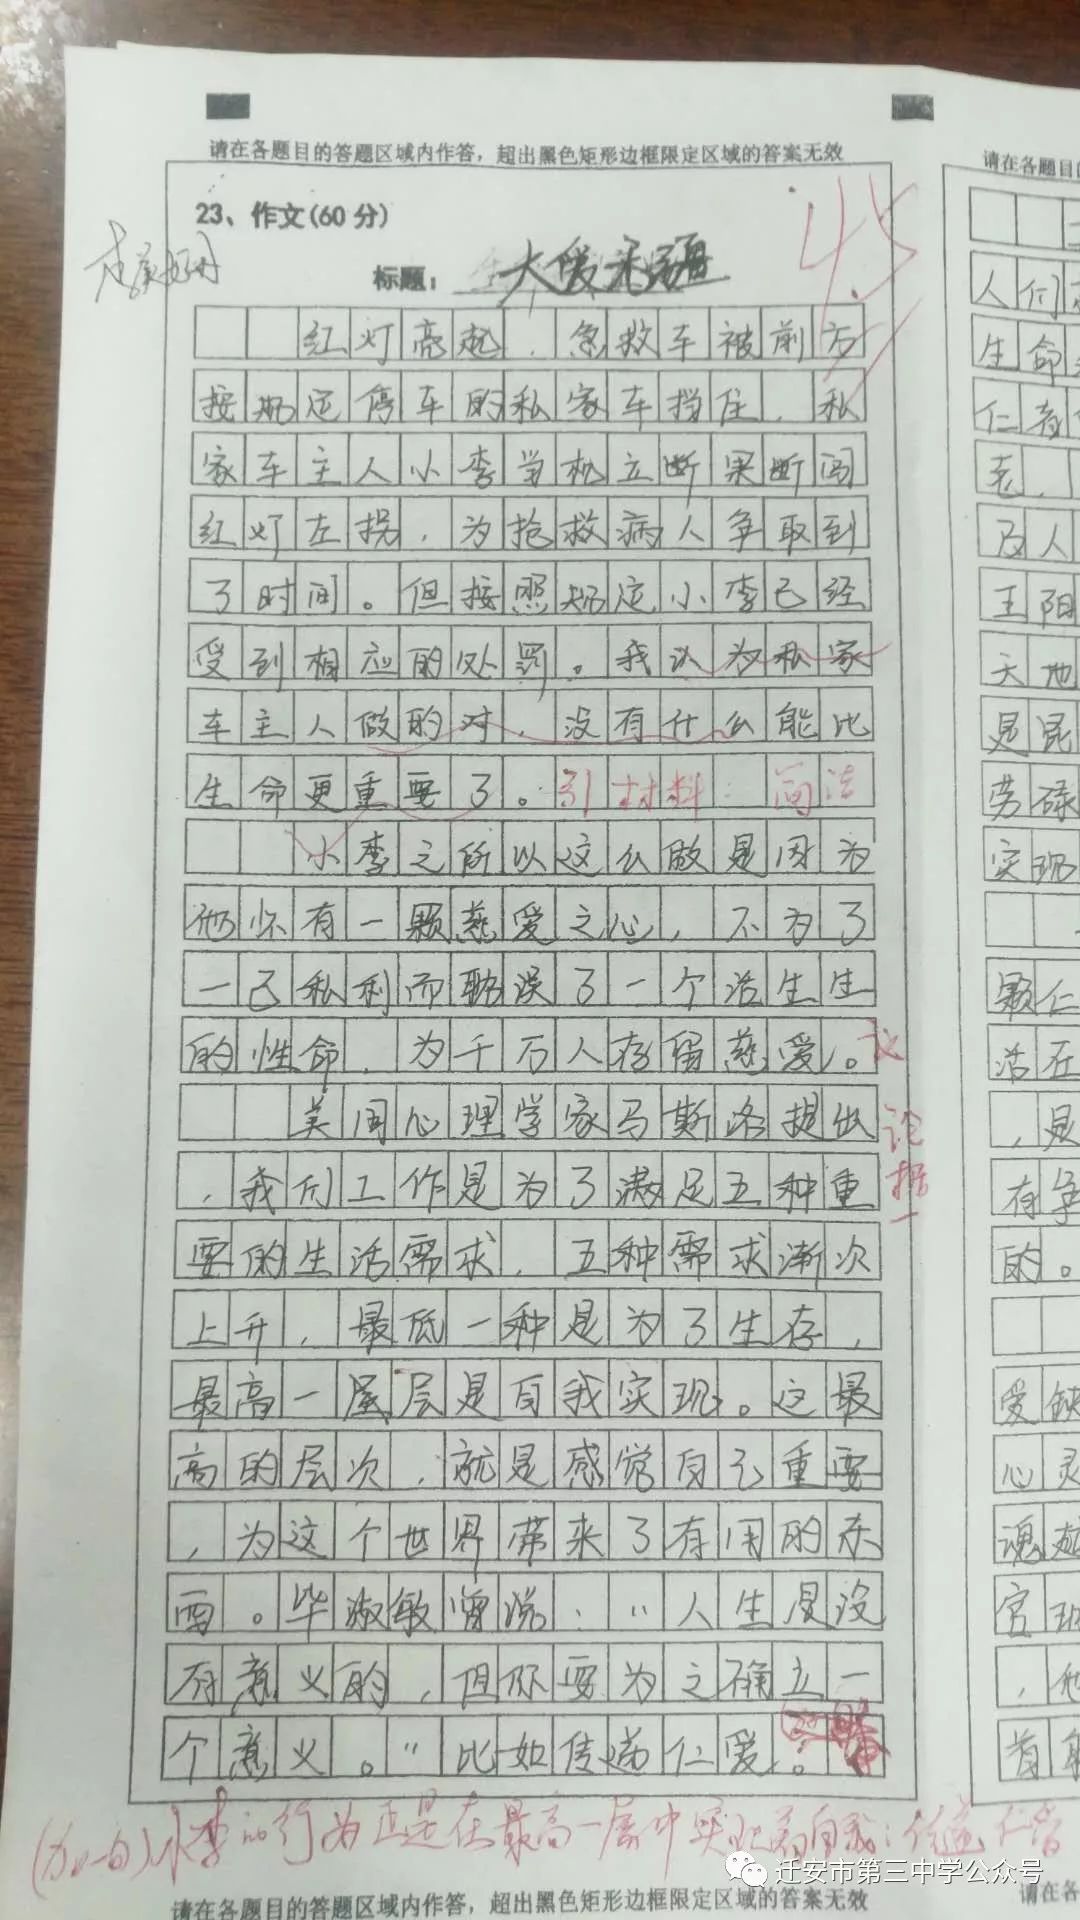 请在各题目的答题区域内作答，超出黑色矩形边框限定区域的答案无效
请在各题目
23、作文(60分)
45
标题：大爱无疆
红灯亮起，急救车被前方
按规定停车的私家车挡住，私
家车主人小李当机立断果断闯
红灯左拐，为抢救病人争取到
了时间。但按照规定小李已经
受到相应的处罚。我认为私家
车主人做的对，没有什么能比
生命更重要了。引材料：简洁
小李之所以这么做是因为
他怀有一颗慈爱之心，不为了
一己私利而耽误了一个活生生
的性命，为千万人存留慈爱。
美国心理学家马斯洛提出
，我们工作是为了满足五种重
要的生活需求，五种需求渐次
上升，最低一种是为了生存，
最高一层是自我实现。这最
高的层次，就是感觉自己重要
，为这个世界带来了有用的东
西。毕淑敏曾说：“人生是没
有意义的，但你要为之确立一
个意义。”比如传递仁爱。
论据一
(加一句)小李的行为正是在最高一层中实现着自我：传递仁爱
请在各题目的答题区域内作答，超出黑色矩形边框限定区域的答案无效
人们
生命
仁者
老，
及人
王阳
天地
是
劳碌
实现
颗仁
活在
，是
有争
的。
受
心灵
魂
官
，他
着
请在各
迁安市第三中学公众号